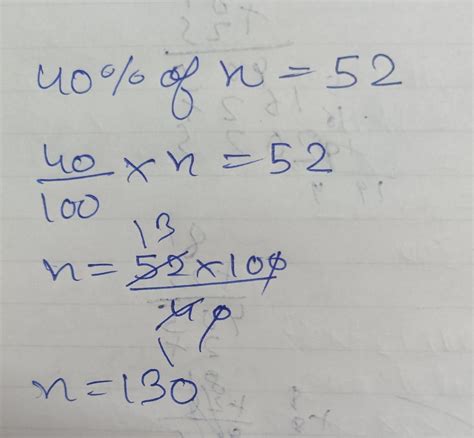 40% of n = 52
40/100 × n = 52
13
n = 52×100/40
1
n = 130